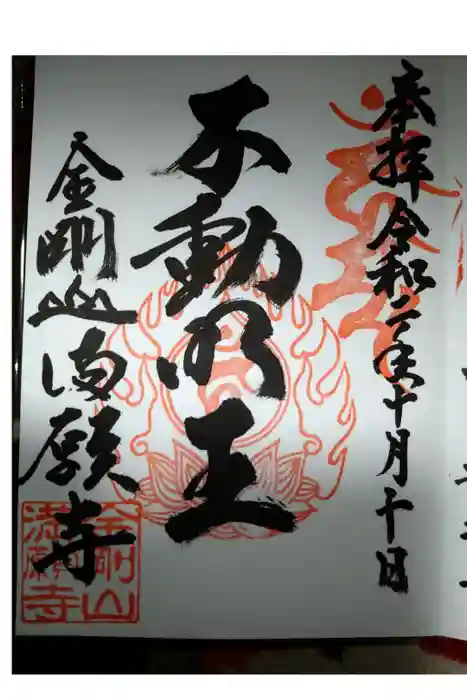 奉拝 令和二年十月十日
不動明王
金剛山満願寺
金剛山
満願寺